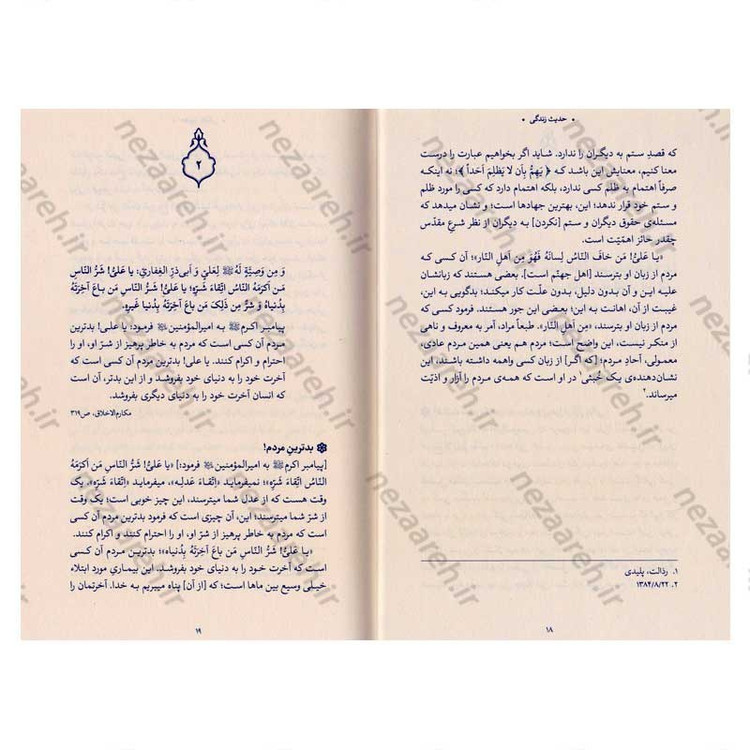 • حدیث زندگی •
که قصدِ ستم به دیگران را ندارد. شاید اگر بخواهیم عبارت را درست
معنا کنیم، معنایش این باشد که ﴿ یَهُمُّ بِأن لا یَظلِمَ اَحَداً ﴾؛ نه اینکه
صرفاً اهتمام به ظلم کسی ندارد، بلکه اهتمام دارد که کسی را مورد ظلم
و ستم خود قرار ندهد؛ این، بهترین جهادها است؛ و نشان میدهد که
مسئله‌ی حقوق دیگران و ستم [نکردن] به دیگران از نظر شرع مقدّس
چقدر حائز اهمّیّت است.
«یا عَلیُّ! مَن خافَ النّاسُ لِسانَهُ فَهُوَ مِن اَهلِ النّار»؛ آن کسی که
مردم از زبان او بترسند [اهل جهنّم است]. بعضی هستند که زبانشان
علیه این و آن بدون دلیل، بدون علّت کار میکند؛ بدگویی به این،
غیبت از آن، اهانت به این؛ بعضی این جور هستند. فرمود کسی که
مردم از زبان او بترسند، «مِن اَهلِ النّار». طبعاً مراد، آمر به معروف و ناهی
از منکر نیست، این واضح است؛ مردم هم یعنی همین مردم عادی،
معمولی، آحاد مردم؛ [که اگر] از زبان کسی واهمه داشته باشند، این
نشان‌دهنده‌ی یک خُبثی۱ در او است که همه‌ی مردم را آزار و اذیّت
میرساند.۲
۱. رذالت، پلیدی
۲. ۱۳۸۴/۸/۲۲
۱۸
۲
وَ مِن وَصِیَّةٍ لَهُ ﷺ لِعَلیٍّ وَ اَبی‌ذَرٍّ الغِفاری: یا عَلیُّ! شَرُّ النّاسِ
مَن اَکرَمَهُ النّاسُ اتِّقاءَ شَرِّهِ؛ یا عَلیُّ! شَرُّ النّاسِ مَن باعَ آخِرَتَهُ
بِدُنیاهُ وَ شَرٌّ مِن ذٰلِکَ مَن باعَ آخِرَتَهُ بِدُنیا غَیرِهِ.
پیامبر اکرم ﷺ به امیرالمؤمنین فرمود: یا علی! بدترین
مردم آن کسی است که مردم به خاطر پرهیز از شرّ او، او را
احترام و اکرام کنند. یا علی! بدترین مردم آن کسی است که
آخرت خود را به دنیای خود بفروشد و از این بدتر، آن است
که انسان آخرت خود را به دنیای دیگری بفروشد.
مکارم‌الاخلاق، ص۳۱۹
بدترین مردم!
[پیامبر اکرم ﷺ به امیرالمؤمنین فرمود:] «یا عَلیُّ! شَرُّ النّاسِ مَن اَکرَمَهُ
النّاسُ اتِّقاءَ شَرِّه»؛ نمیفرماید «اِتِّقاءَ عَدلِه»، میفرماید «اِتِّقاءَ شَرِّه»، یک
وقت هست که از عدل شما میترسند، این چیز خوبی است؛ یک وقت
از شرّ شما میترسند؛ این، آن چیزی است که فرمود بدترین مردم آن کسی
است که مردم به خاطر پرهیز از شرّ او، او را احترام کنند و اکرام کنند.
«یا عَلیُّ! شَرُّ النّاسِ مَن باعَ آخِرَتَهُ بِدُنیاه»؛ بدترین مردم آن کسی
است که آخرت خود را به دنیای خود بفروشد. این بیماریِ مورد ابتلاء
خیلی وسیع بین ماها است؛ که [از آن] پناه میبریم به خدا. آخرتمان را
۱۹
nezaareh.ir